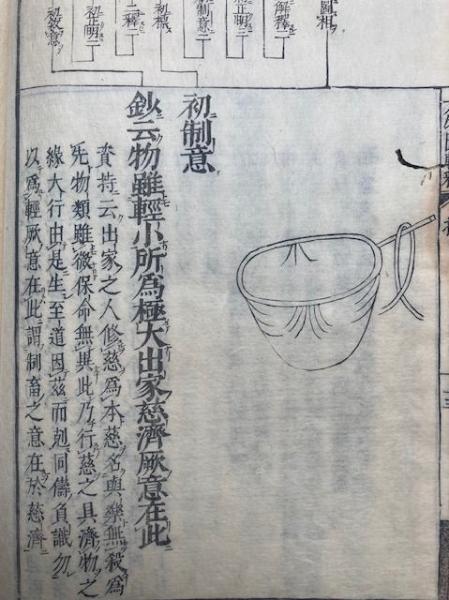 圖相
解釋二
制意二
正明二
初標
二釋二
初正明二
初敘意
初制意
鈔云物雖輕小所爲極大出家慈濟厥意在此
資持云出家之人修慈爲本慈名與樂無殺爲
先物類雖微保命無異此乃行慈之具濟物之
緣大行由是生至道因茲而剋同儔負識勿
以爲輕厥意在此謂制畜之意在於慈濟